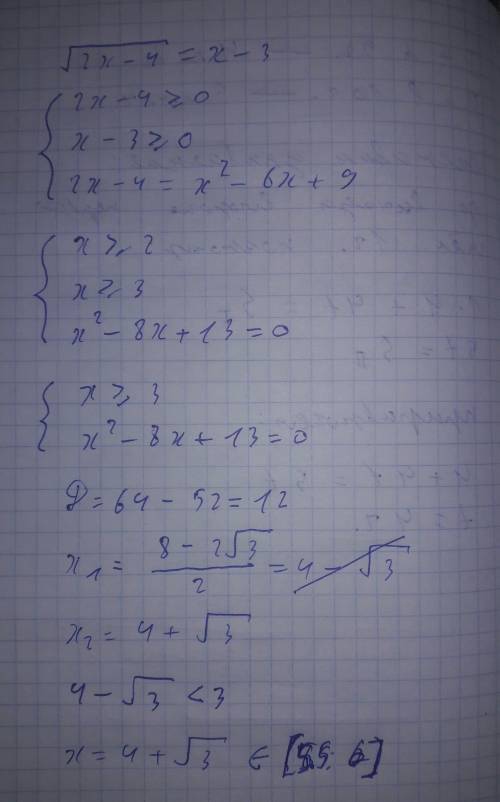 √2x-4 = x-3
2x-4 ≥ 0
x-3 ≥ 0
2x-4 = x² - 6x + 9
x ≥ 2
x ≥ 3
x² - 8x + 13 = 0
x ≥ 3
x² - 8x + 13 = 0
D = 64 - 52 = 12
x₁ = (8 - 2√3)/2 = 4 - √3
x₂ = 4 + √3
4 - √3 < 3
x = 4 + √3 ∈